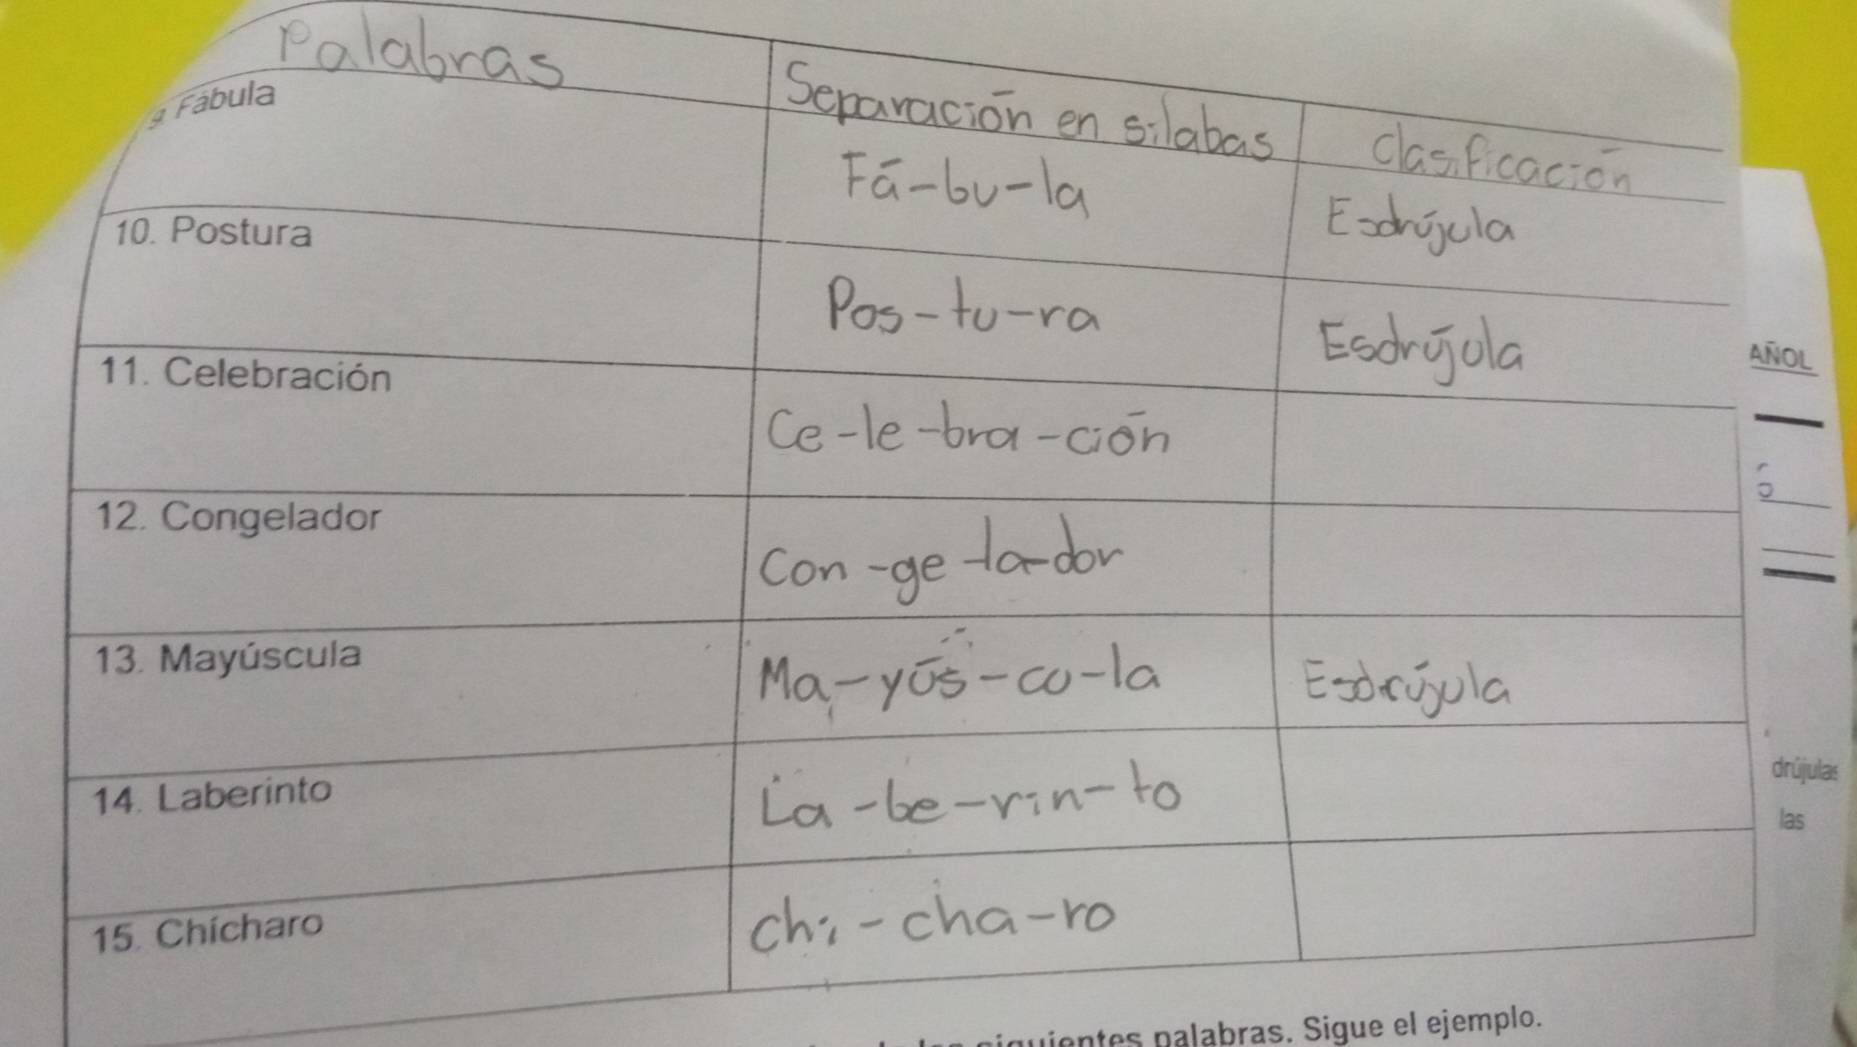 Palabras Separación en silabas Clasificación
9. Fábula Fá-bu-la Esdrújula
10. Postura Pos-tu-ra Esdrújula
11. Celebración Ce-le-bra-ción
12. Congelador Con-ge-la-dor
13. Mayúscula Ma-yús-cu-la Esdrújula
14. Laberinto La-be-rin-to
15. Chícharo Chi-cha-ro
siguientes palabras. Sigue el ejemplo.
AÑOL
drújulas
las